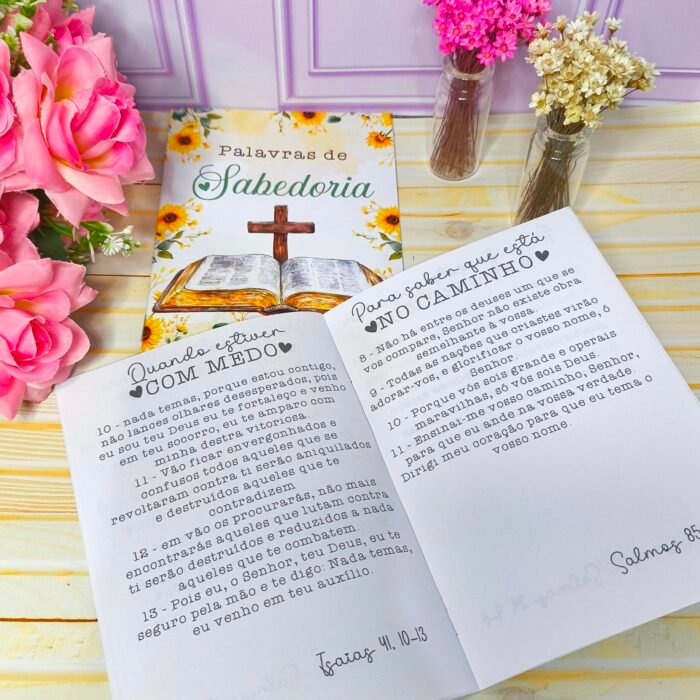 Palavras de
Sabedoria
Quando estiver
COM MEDO
10 - nada temas, porque estou contigo,
não lances olhares desesperados, pois
eu sou teu Deus eu te fortaleço e venho
em teu socorro, eu te amparo com
minha destra vitoriosa.
11 - Vão ficar envergonhados e
confusos todos aqueles que se
revoltaram contra ti serão aniquilados
e destruídos aqueles que te
contradizem
12 - em vão os procurarás, não mais
encontrarás aqueles que lutam contra
ti serão destruídos e reduzidos a nada
aqueles que te combatem.
13 - Pois eu, o Senhor, teu Deus, eu te
seguro pela mão e te digo: Nada temas,
eu venho em teu auxílio.
Isaias 41, 10-13
Para saber que está
NO CAMINHO
8 - Não há entre os deuses um que se
vos compare, Senhor não existe obra
semelhante à vossa.
9 - Todas as nações que criastes virão
adorar-vos, e glorificar o vosso nome, ó
Senhor
10 - Porque vós sois grande e operais
maravilhas, só vós sois Deus.
11 - Ensinai-me vosso caminho, Senhor,
para que eu ande na vossa verdade.
Dirigi meu coração para que eu tema o
vosso nome.
Salmos 85